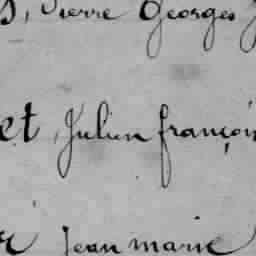 s, Pierre Georges
et, Julien françois
Jean marie